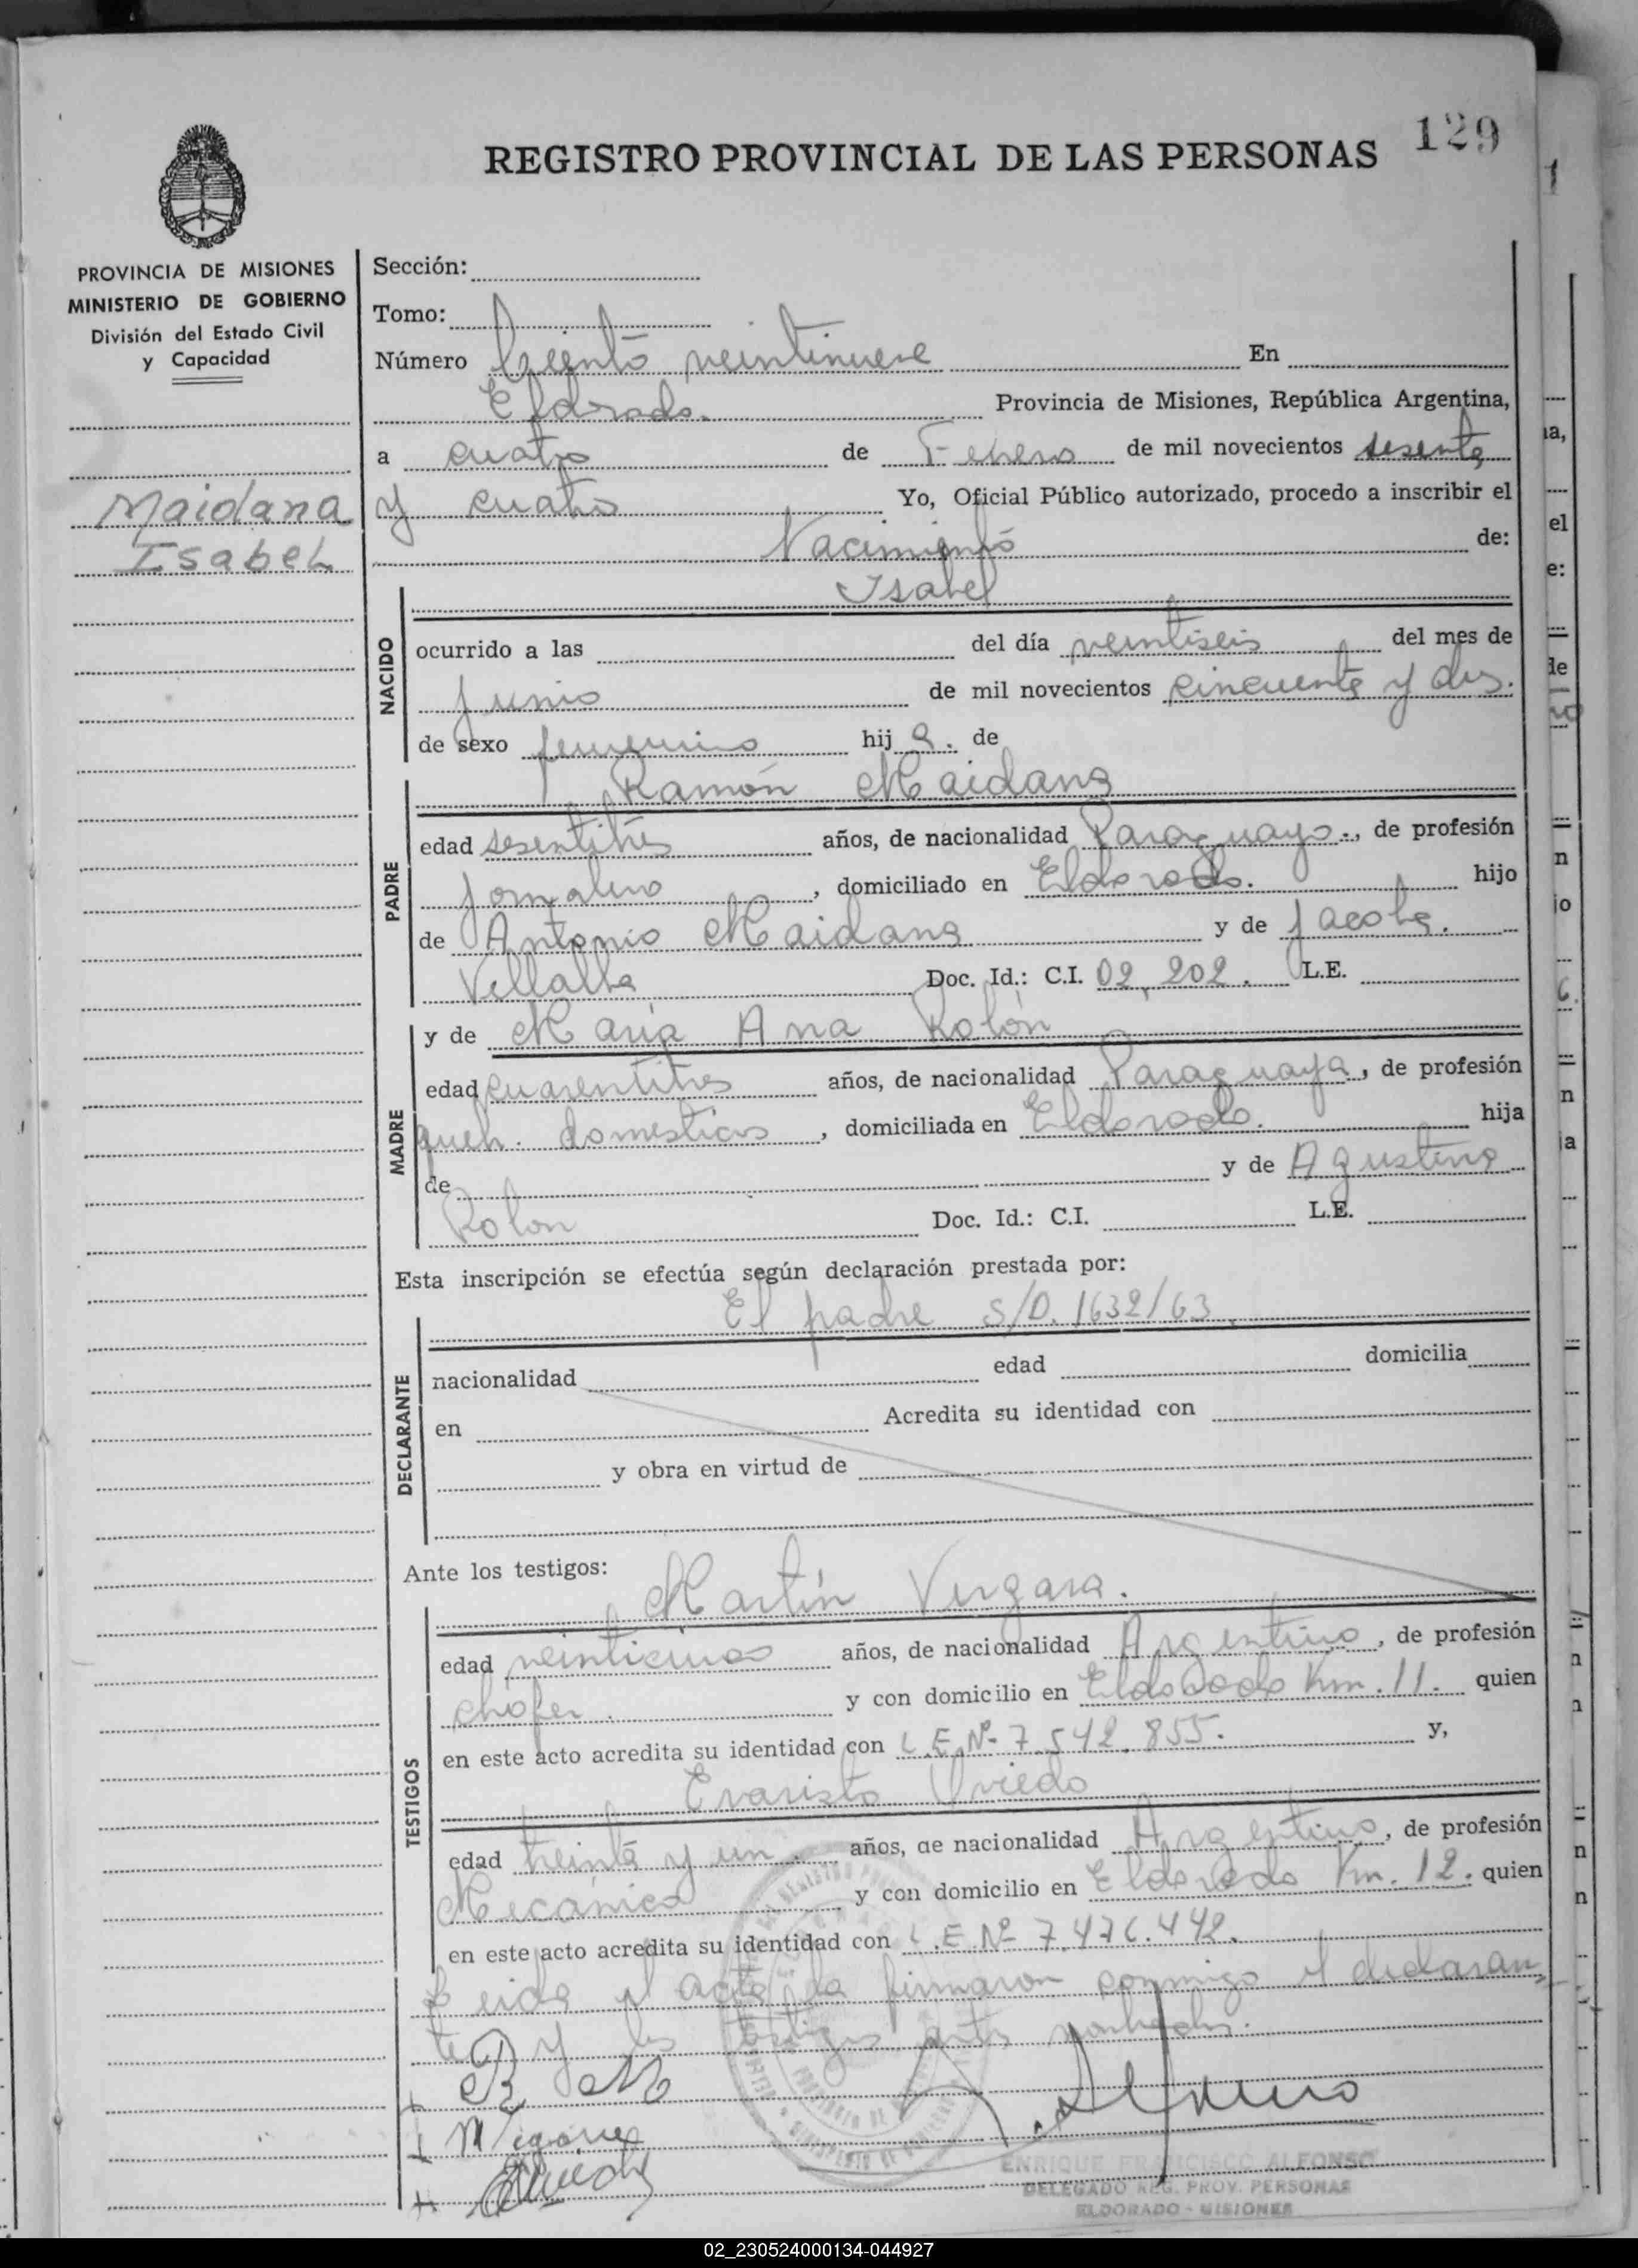 129
REGISTRO PROVINCIAL DE LAS PERSONAS
PROVINCIA DE MISIONES
MINISTERIO DE GOBIERNO
División del Estado Civil
y Capacidad
Maidana
Isabel
Sección:
Tomo:
Número Ciento veintinueve En
Eldorado. Provincia de Misiones, República Argentina,
a cuatro de Febrero de mil novecientos sesenta
y cuatro Yo, Oficial Público autorizado, procedo a inscribir el
Nacimiento de:
Isabel
NACIDO
ocurrido a las del día veintiseis del mes de
junio de mil novecientos cincuenta y dos.
de sexo femenino hij a. de
Ramón Maidana
PADRE
edad sesentitrés años, de nacionalidad Paraguayo., de profesión
jornalero, domiciliado en Eldorado. hijo
de Antonio Maidana y de Jacoba.
Villalba Doc. Id.: C.I. 02,202. L.E.
y de María Ana Rolón
MADRE
edad cuarentitres años, de nacionalidad Paraguaya, de profesión
queh. domesticos, domiciliada en Eldorado. hija
de y de Agustina
Rolon Doc. Id.: C.I. L.E.
Esta inscripción se efectúa según declaración prestada por:
El padre S/D. 1632/63.
DECLARANTE
nacionalidad edad domicilia
en Acredita su identidad con
y obra en virtud de
Ante los testigos:
Martín Vergara.
TESTIGOS
edad veinticinco años, de nacionalidad Argentino, de profesión
chófer. y con domicilio en Eldorado Km. 11. quien
en este acto acredita su identidad con L.E.Nº 7.542.855. y,
Evaristo Oviedo
edad treinta y un. años, de nacionalidad Argentino, de profesión
Mecánico y con domicilio en Eldorado Km. 12. quien
en este acto acredita su identidad con L.E.Nº 7.476.442.
Leida el acta la firmaron conmigo el declaran-
te y los testigos antes nombrados.
ENRIQUE FRANCISCO ALFONSO
DELEGADO REG. PROV. PERSONAS
ELDORADO - MISIONES
02_230524000134-044927